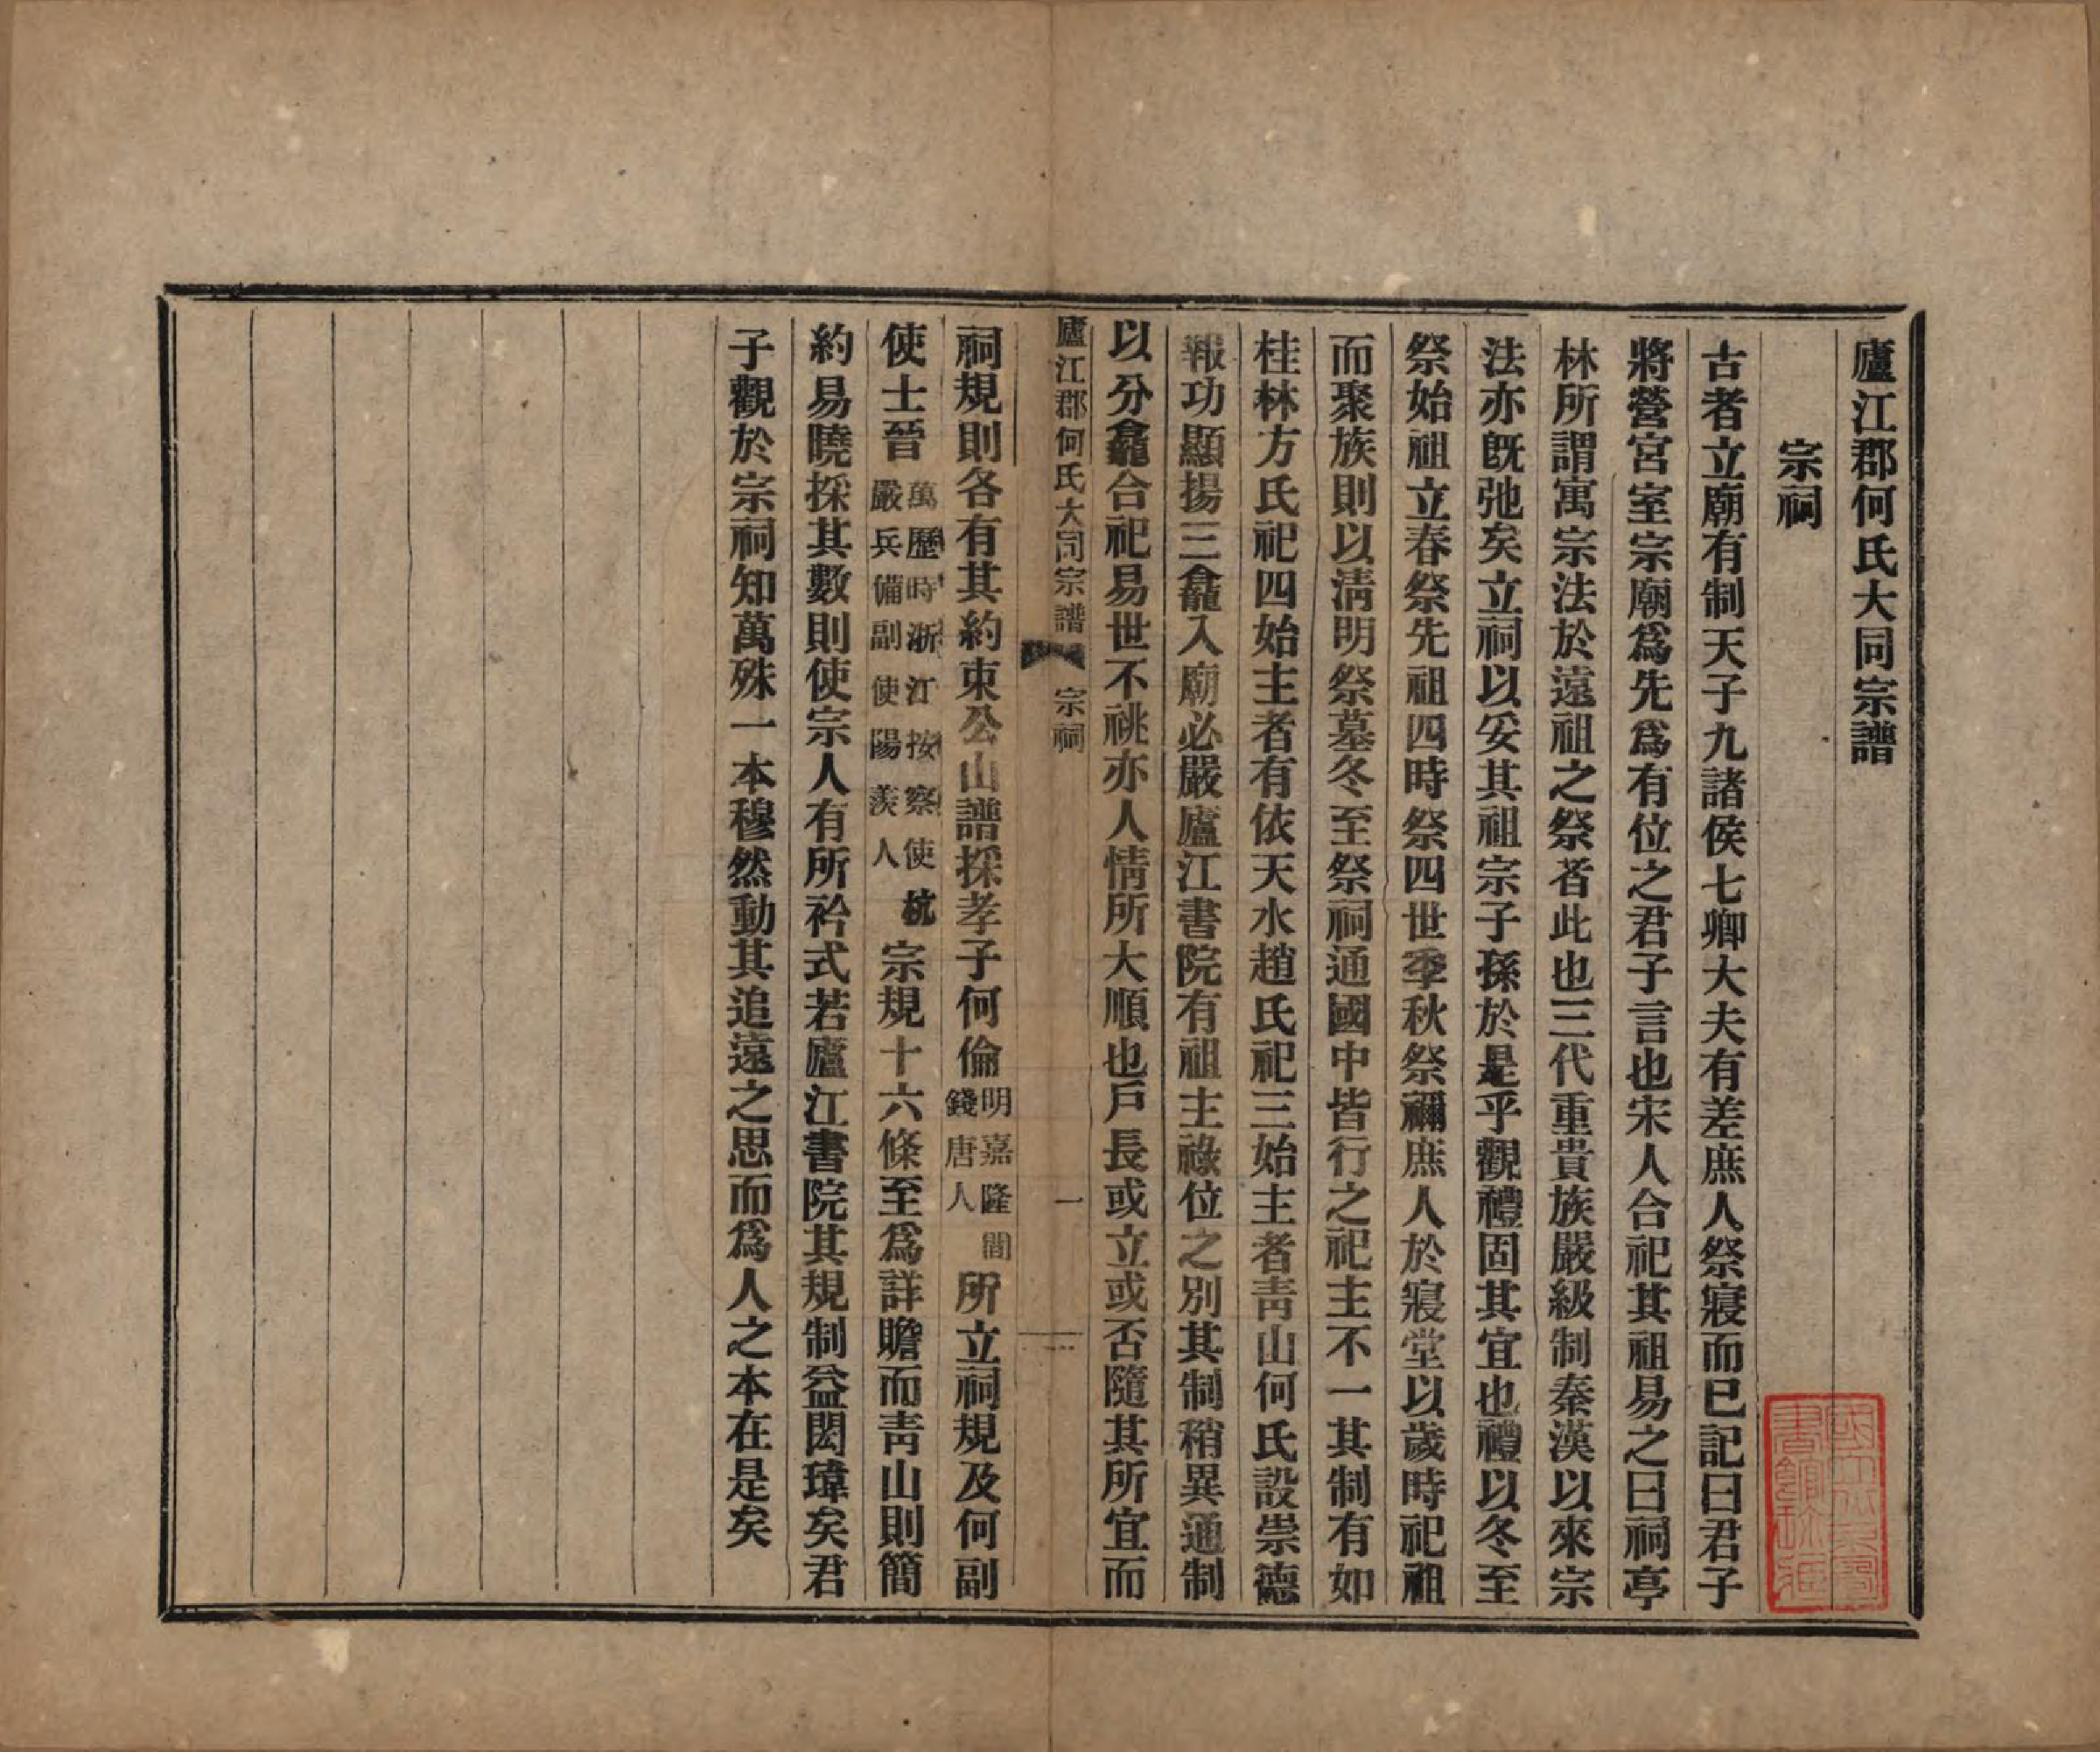 廬江郡何氏大同宗譜
宗祠
古者立廟有制天子九諸侯七卿大夫有差庶人祭寢而已記曰君子
將營宮室宗廟爲先爲有位之君子言也宋人合祀其祖易之曰祠亭
林所謂寓宗法於遠祖之祭者此也三代重貴族嚴級制秦漢以來宗
法亦既弛矣立祠以妥其祖宗子孫於是乎觀禮固其宜也禮以冬至
祭始祖立春祭先祖四時祭四世季秋祭禰庶人於寢堂以歲時祀祖
而聚族則以淸明祭墓冬至祭祠通國中皆行之祀主不一其制有如
桂林方氏祀四始主者有依天水趙氏祀三始主者靑山何氏設崇德
報功顯揚三龕入廟必嚴廬江書院有祖主祿位之別其制稍異通制
以分龕合祀易世不祧亦人情所大順也戶長或立或否隨其所宜而
廬江郡何氏大同宗譜 宗祠 一
祠規則各有其約束公山譜採孝子何倫明嘉隆間錢唐人所立祠規及何副
使士晉萬歷時浙江按察使杭嚴兵備副使陽羨人宗規十六條至爲詳贍而靑山則簡
約易曉採其數則使宗人有所衿式若廬江書院其規制益閎瑋矣君
子觀於宗祠知萬殊一本穆然動其追遠之思而爲人之本在是矣